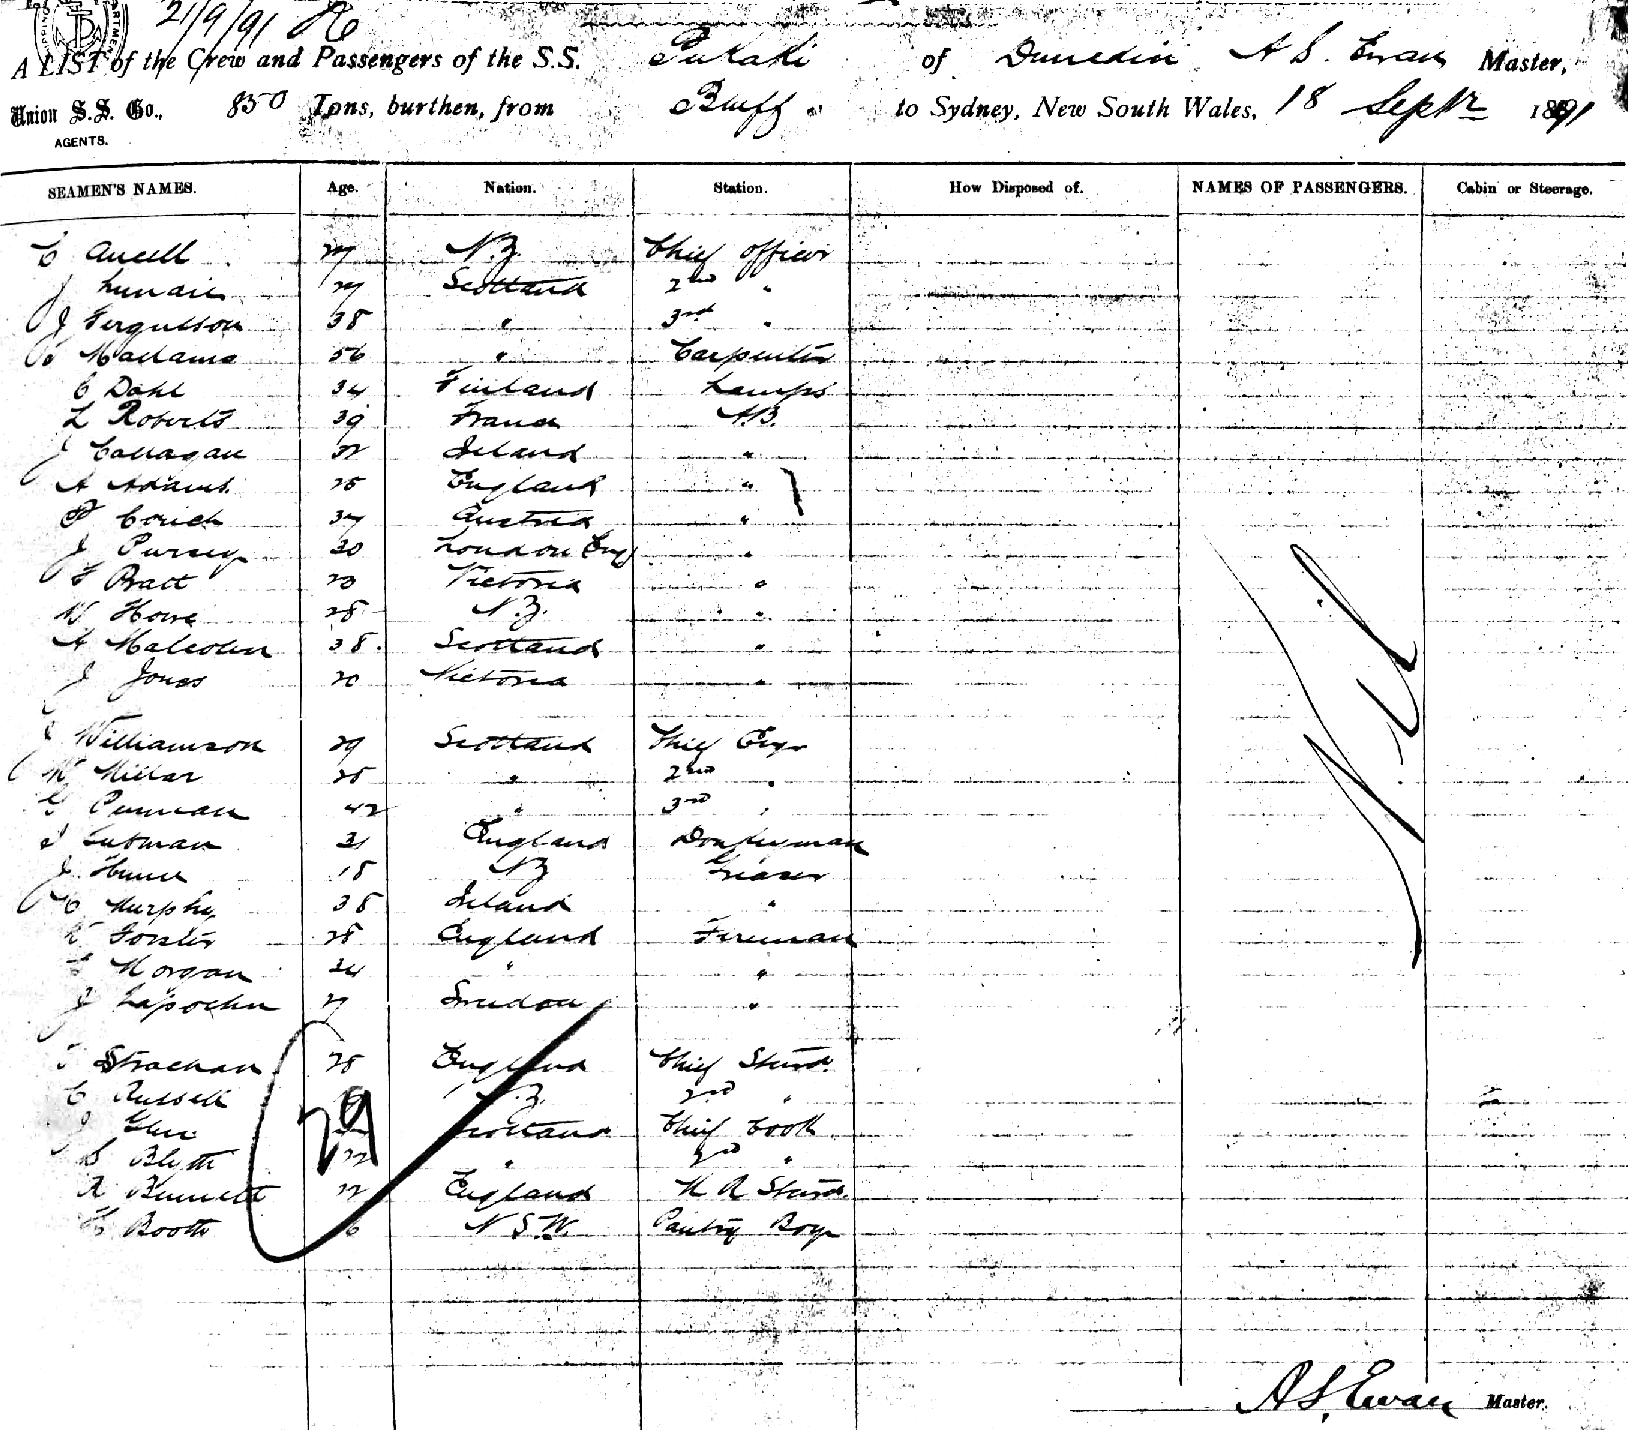 21/9/91
A LIST of the Crew and Passengers of the S.S. Pukaki of Dunedin A S. Ewan Master,
Union S.S. Co., 850 Tons, burthen, from Bluff to Sydney, New South Wales, 18 Septr 1891
AGENTS.
SEAMEN'S NAMES. Age. Nation. Station. How Disposed of. NAMES OF PASSENGERS. Cabin or Steerage.
C 27 N.Z. Chief Officer
J 27 Scotland 2nd "
J Fergusson 38 " 3rd "
56 " Carpenter
C Dahl 34 Finland Lamps
L Roberts 39 France A.B.
J Callagan 32 Ireland "
A Adams 25 England "
Couch 37 Austria "
J 30 London Eng "
F Pratt 20 Victoria "
W Howe 28 N.Z. "
A Malcolm 38. Scotland "
J Jones 20 Victoria "
Nil
J Williamson 29 Scotland Chief Engr
W Millar 25 " 2nd "
42 " 3rd "
31 England Donkeyman
J. 18 NZ Greaser
C Murphy 38 Ireland "
Forster 28 England Fireman
Morgan 24 " "
J 27 Sweden "
Strachan 28 England Chief Stwd.
C Russell N.Z. 2nd "
J Scotland Chief Cook
S Blyth 22 " 2nd "
R Bennett 22 England Stwd.
Booth N.S.W. Pantry Boy
29
A S. Ewan Master.